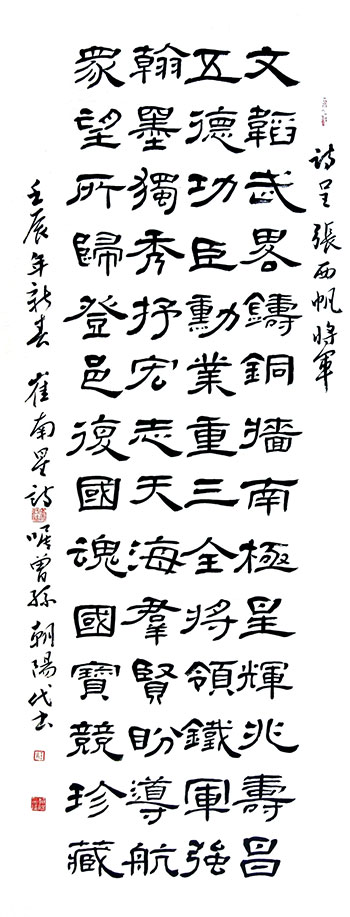 詩呈張西帆將軍
文韜武畧鑄銅墻南極星輝兆壽昌
五德功臣勳業重三全將領鐵軍強
翰墨獨秀抒宏志天海羣賢盼導航
眾望所歸登邑復國魂國寶競珍藏
壬辰年新春 崔南星詩 嘱曾孫朝陽代书